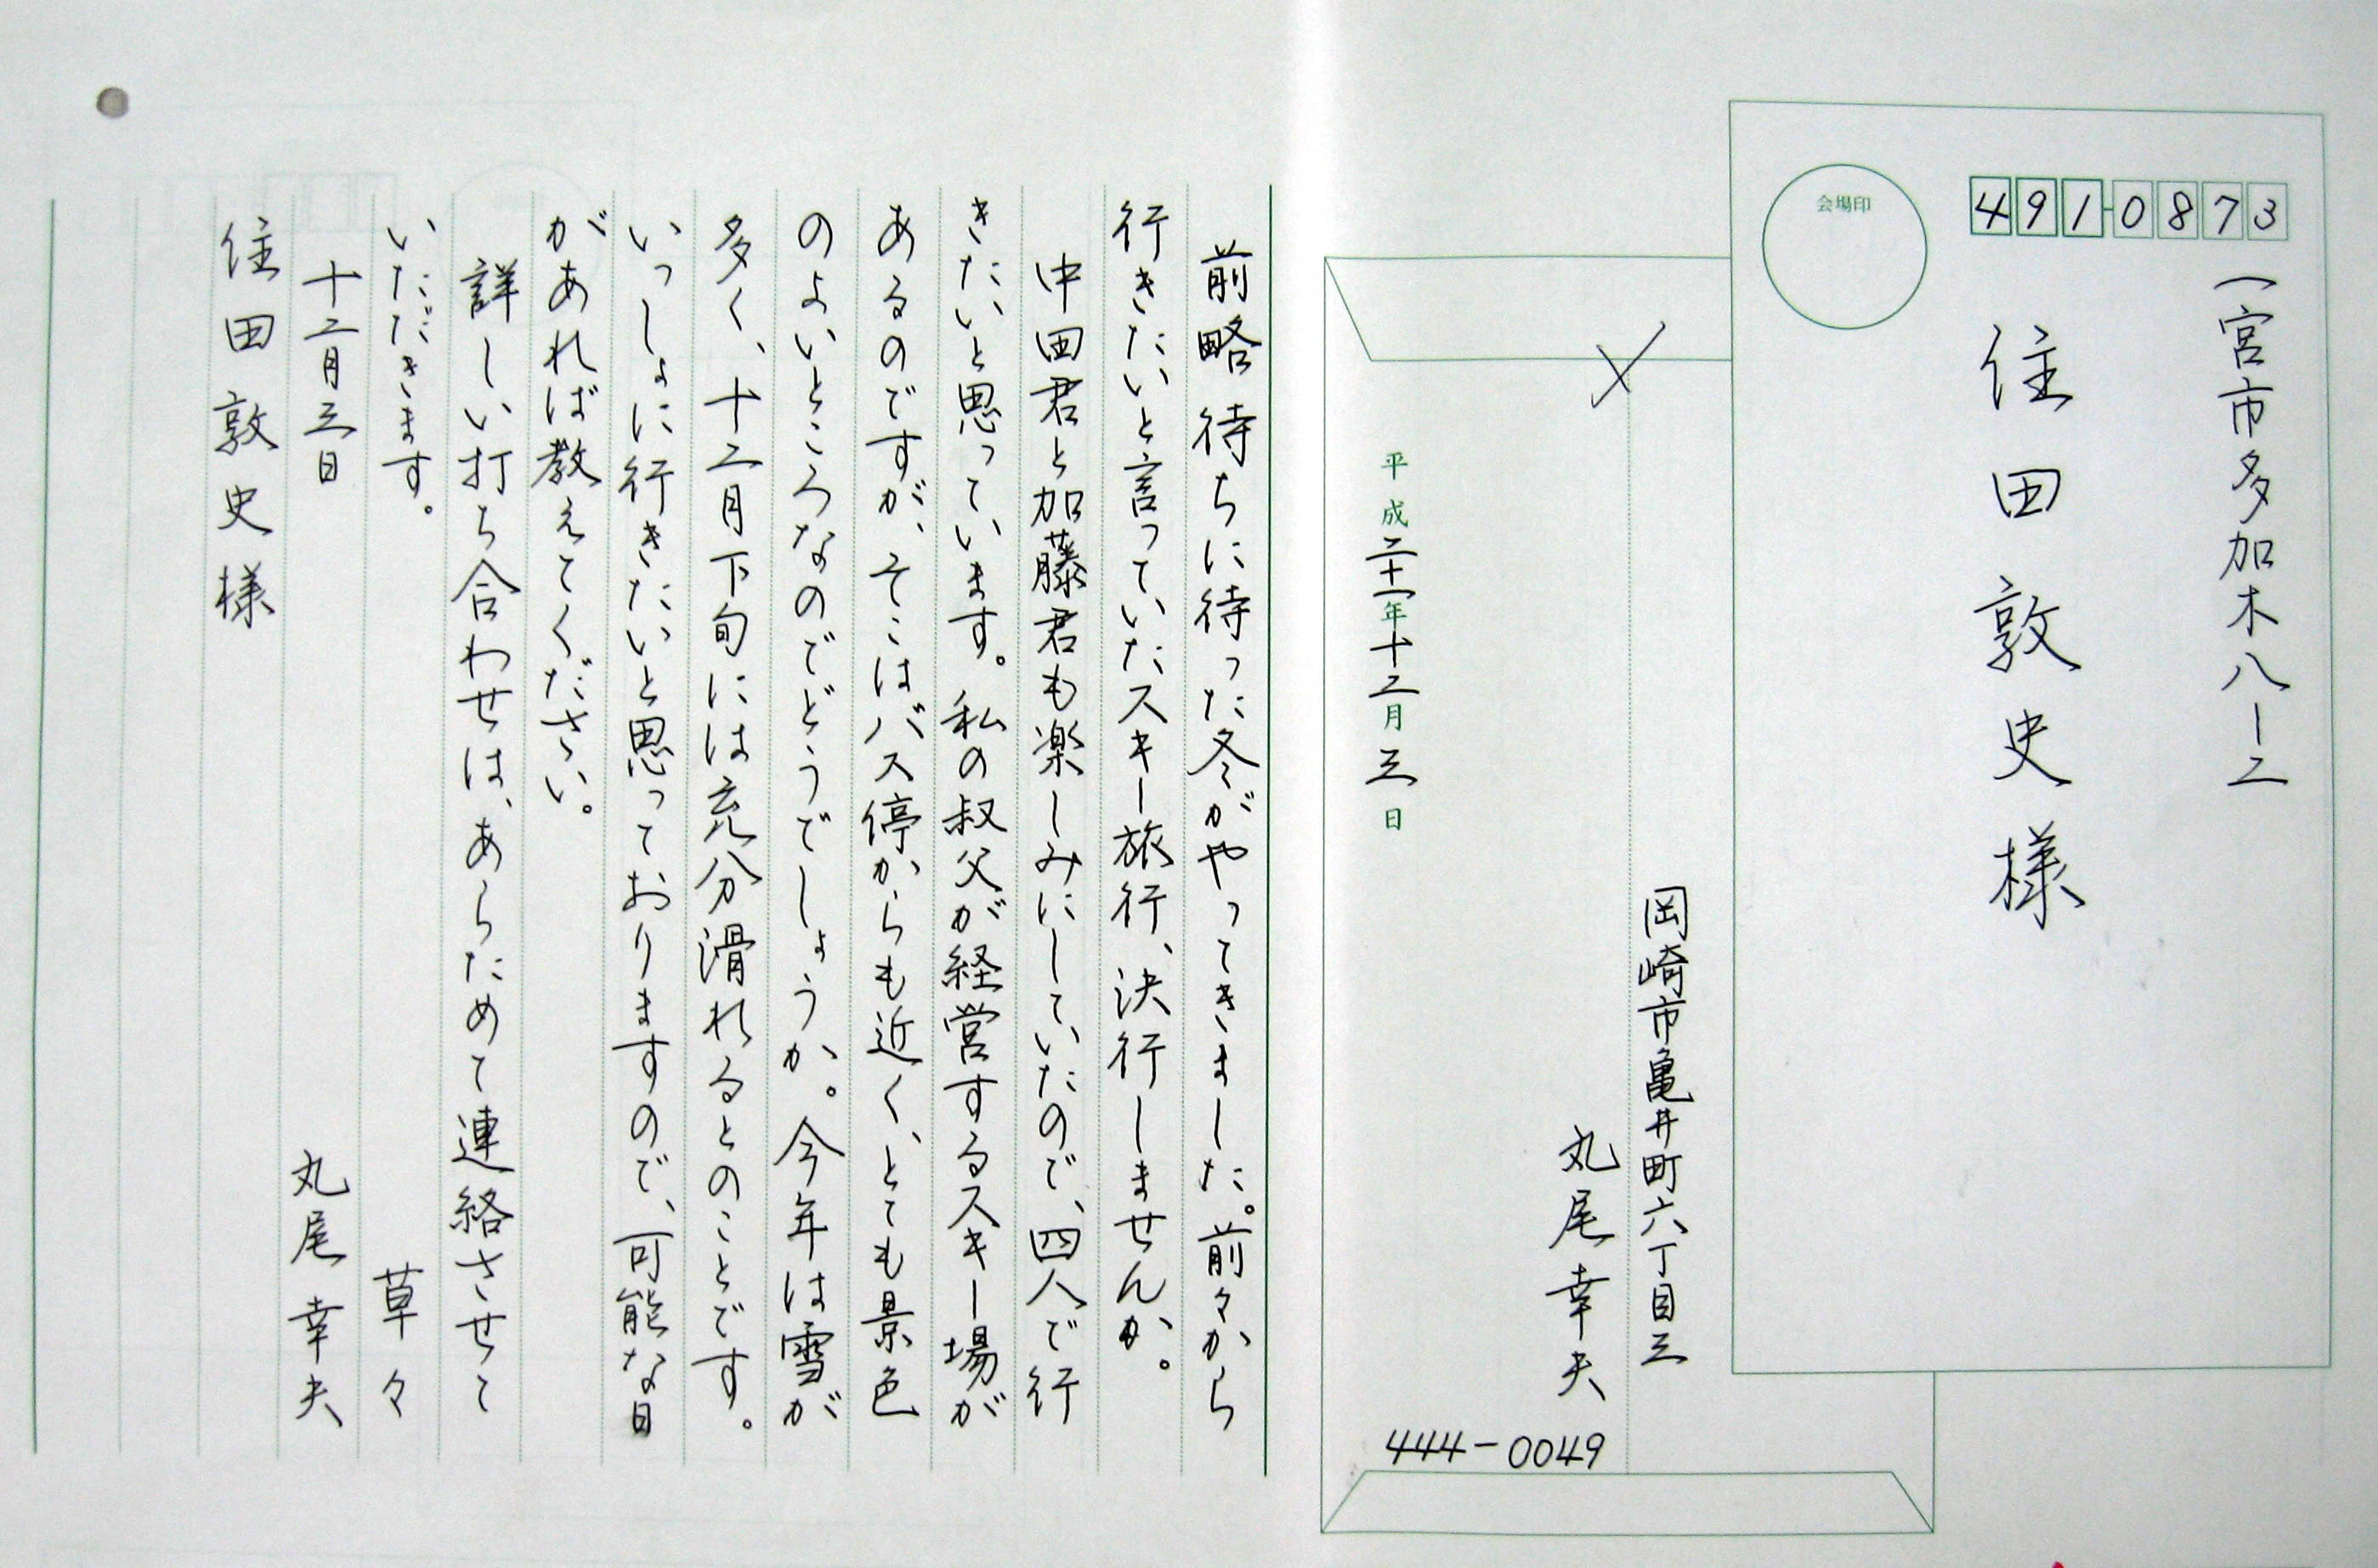 491-0873
一宮市多加木八ー二
住田敦史様
会場印
〆
岡崎市亀井町六丁目三
丸尾幸夫
444-0049
平成二十一年十二月三日
前略 待ちに待った冬がやってきました。前々から
行きたいと言っていたスキー旅行、決行しませんか。
中田君と加藤君も楽しみにしていたので、四人で行
きたいと思っています。私の叔父が経営するスキー場が
あるのですが、そこはバス停からも近く、とても景色
のよいところなのでどうでしょうか。今年は雪が
多く、十二月下旬には充分滑れるとのことです。
いっしょに行きたいと思っておりますので、可能な日
があれば教えてください。
詳しい打ち合わせは、あらためて連絡させて
いただきます。 草々
十二月三日 丸尾幸夫
住田敦史様